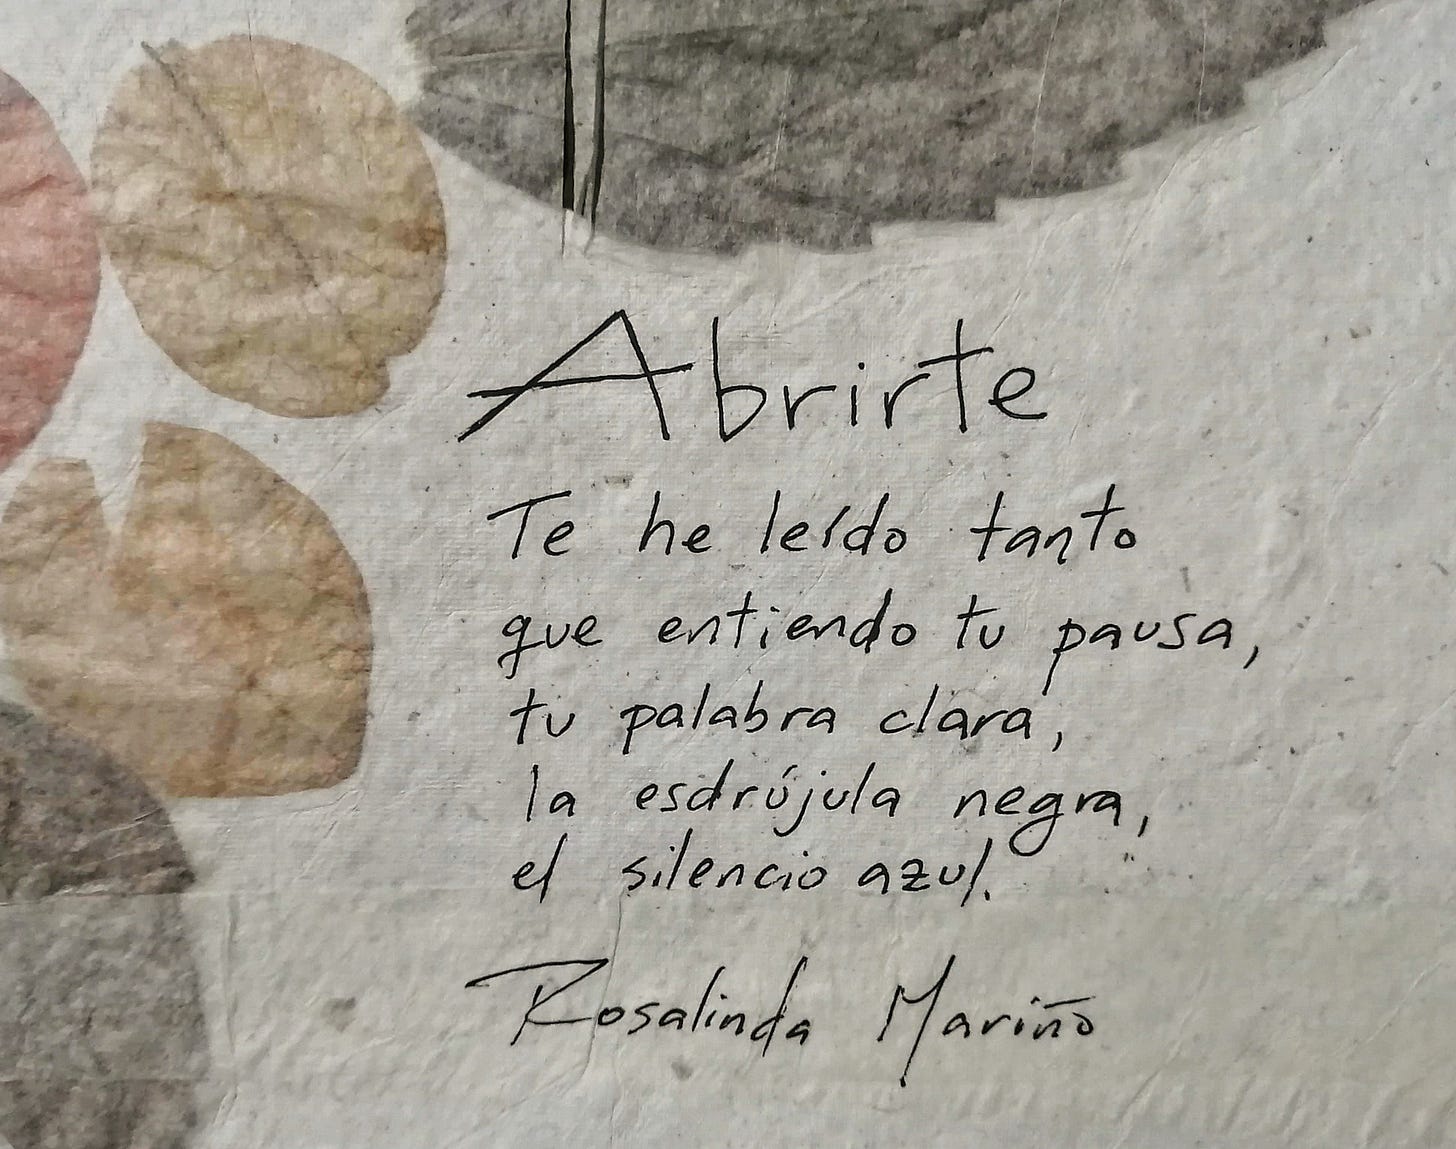 Abrirte
Te he leído tanto
que entiendo tu pausa,
tu palabra clara,
la esdrújula negra,
el silencio azul.
Rosalinda Mariño